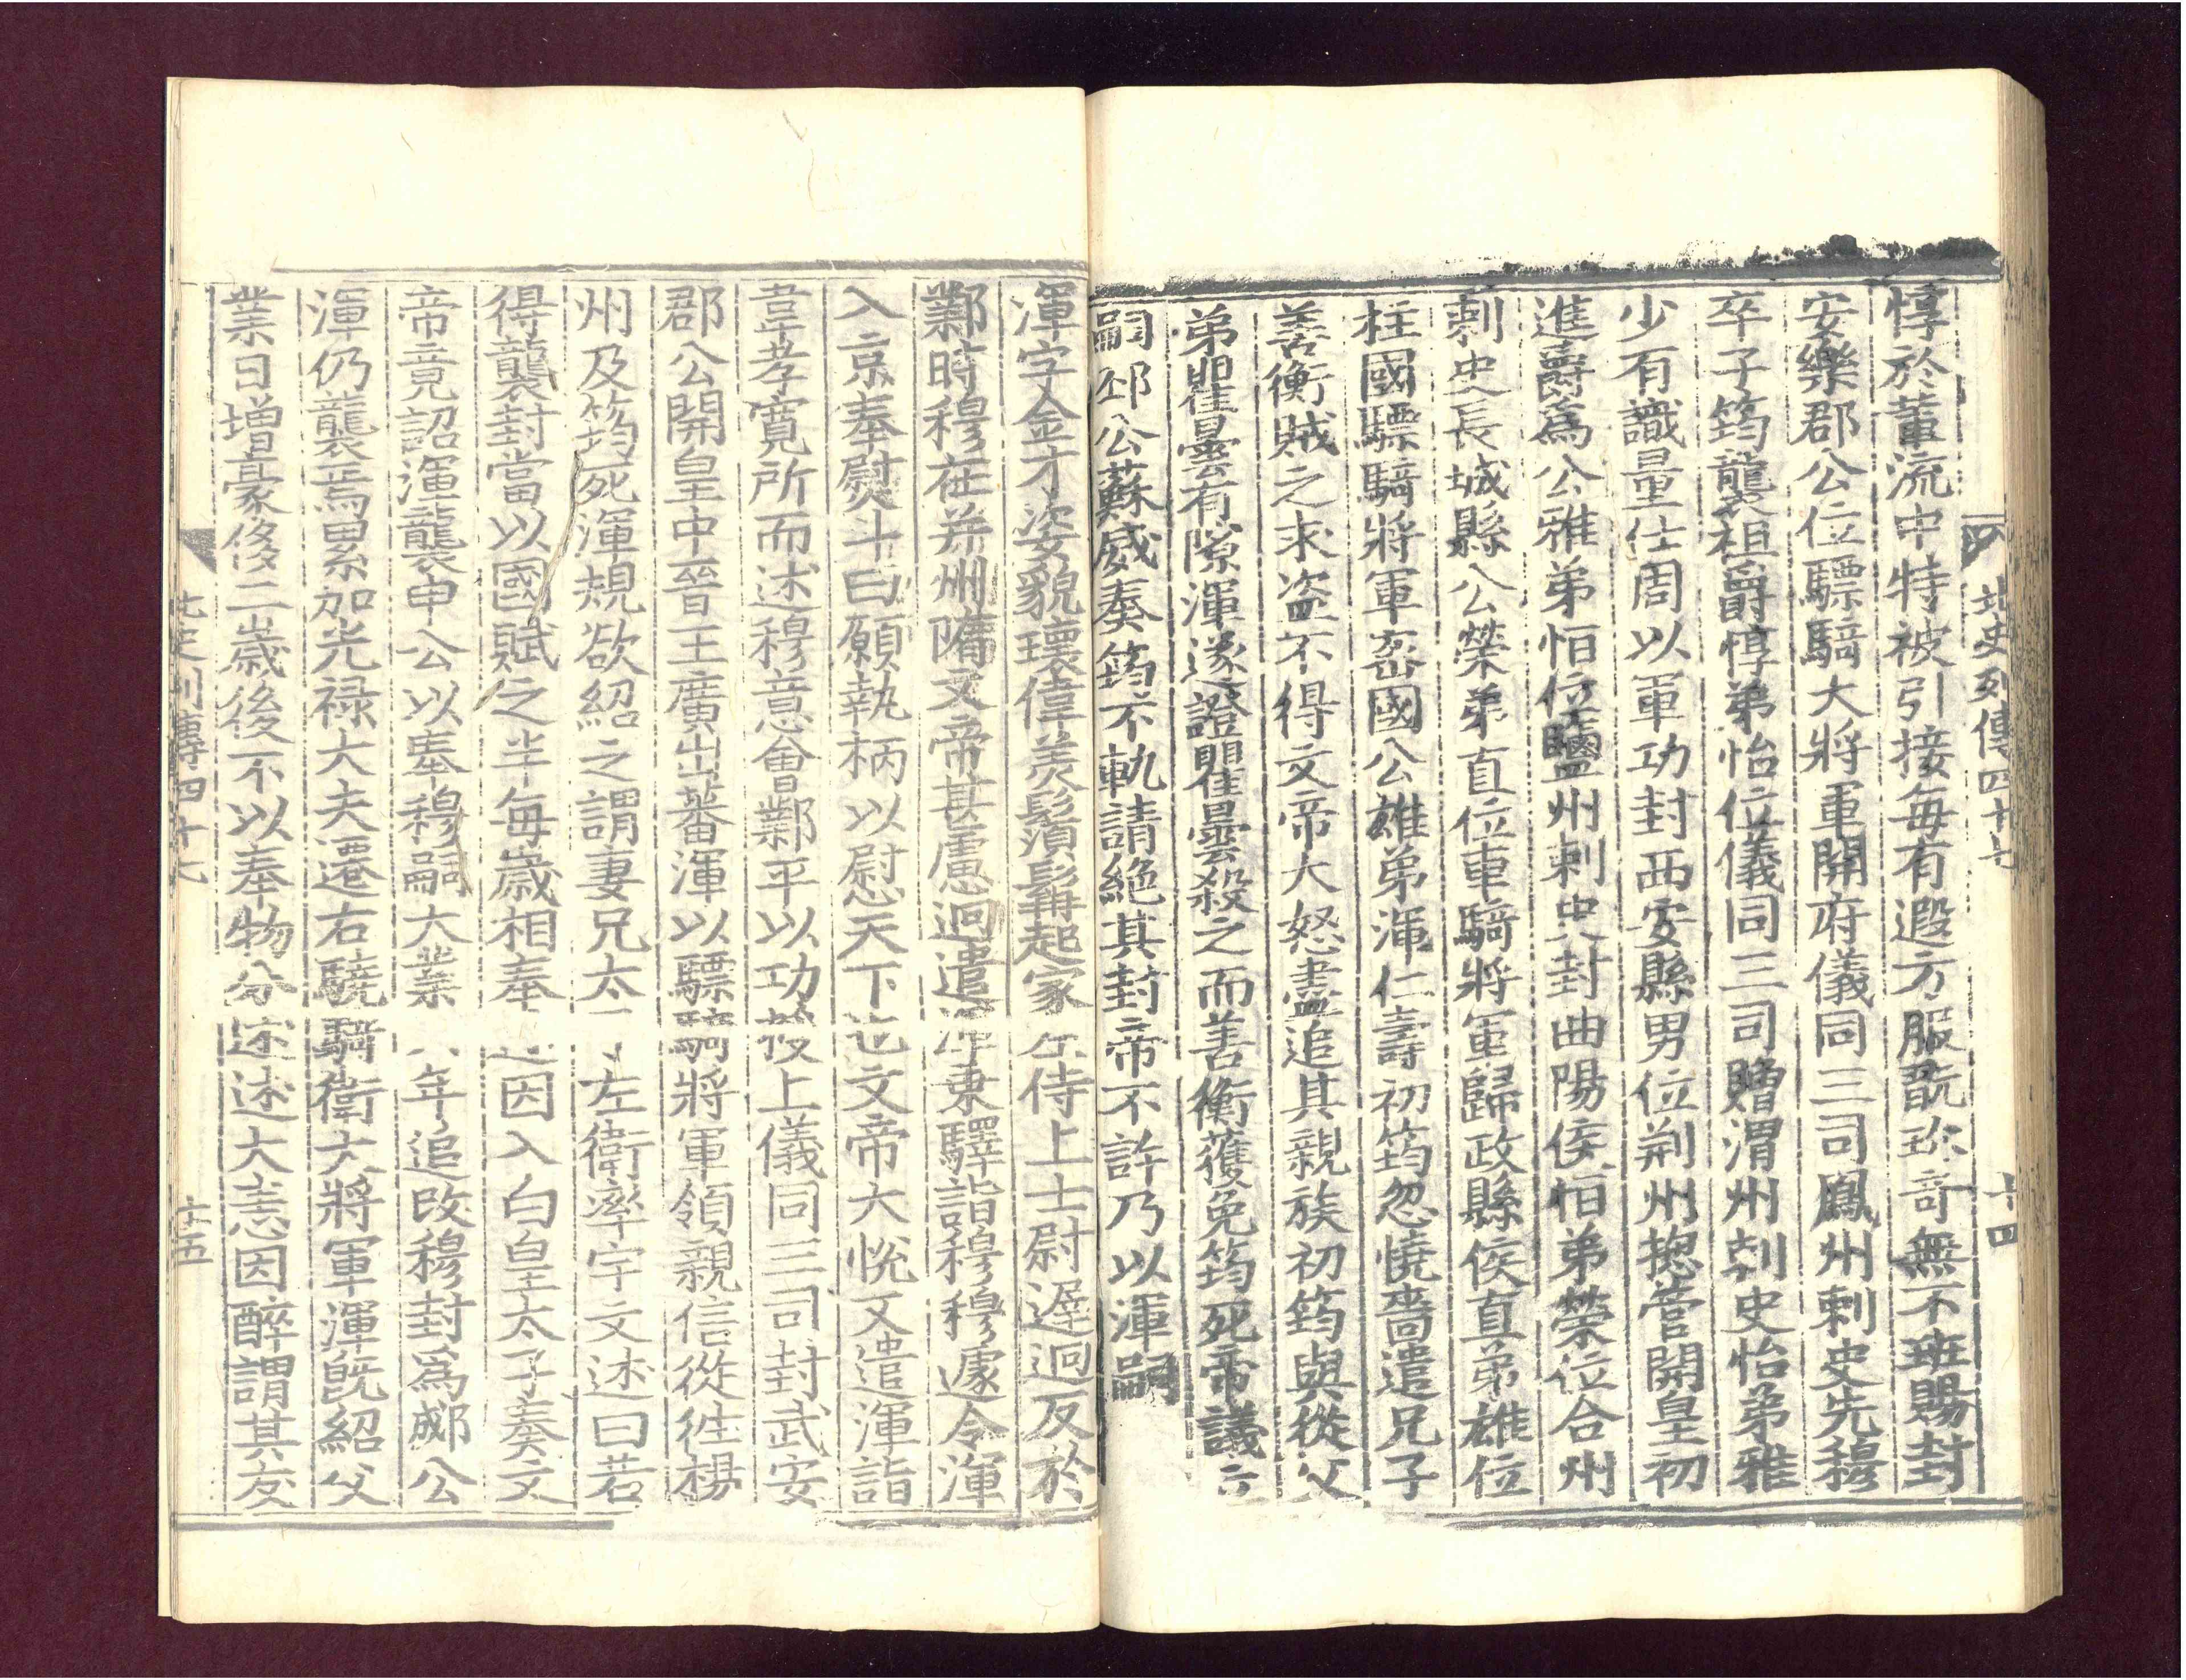 北史列傳四十七
十四
惇於輩流中特被引接每有遐方服翫珎奇無不班賜封
安樂郡公位驃騎大將軍開府儀同三司鳳州刺史先穆
卒子筠襲祖爵惇弟怡位儀同三司贈渭州刺史怡弟雅
少有識量仕周以軍功封西安縣男位荊州揔管開皇初
進爵爲公雅弟怕位鹽州刺史封曲陽侯怕弟榮位合州
刺史長城縣公榮弟直位車騎將軍歸政縣侯直弟雄位
柱國驃騎將軍密國公雄弟渾仁壽初筠忽憢嗇遣兄子
善衡賊之求盗不得文帝大怒盡追其親族初筠與從父
弟瞿曇有隙渾遂證瞿曇殺之而善衡獲免筠死帝議六
嗣邳公蘇威奏筠不軌請絶其封帝不許乃以渾嗣
渾字金才姿貌瓌偉美鬚髯起家左侍上士尉遲迥反於
鄴時穆在并州隋文帝甚慮迥遣渾乗驛詣穆穆遽令渾
入京奉熨斗曰願執柄以慰天下也文帝大悅又遣渾詣
韋孝寬所而述穆意會鄴平以功授上儀同三司封武安
郡公開皇中晉王廣出蕃渾以驃騎將軍領親信從徃楊
州及筠死渾規欲紹之謂妻兄太子左衛率宇文述曰若
得襲封當以國賦之半每歲相奉述因入白皇太子奏文
帝竟詔渾襲申公以奉穆嗣大業六年追改穆封爲郕公
渾仍襲焉累加光禄大夫遷右驍騎衛大將軍渾旣紹父
業日增豪侈二歲後不以奉物分述述大恚因醉謂其友
北史列傳四十七
十五